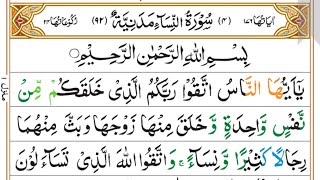 اٰیَاتُهَا ١٧٦ (٤) سُوْرَةُ النِّسَآءِ مَدَنِيَّةٌ (٩٢) رُكُوْعَاتُهَا ٢٤
بِسْمِ اللهِ الرَّحْمٰنِ الرَّحِيْمِ
يٰۤاَيُّهَا النَّاسُ اتَّقُوْا رَبَّكُمُ الَّذِيْ خَلَقَكُمْ مِّنْ
نَّفْسٍ وَّاحِدَةٍ وَّخَلَقَ مِنْهَا زَوْجَهَا وَبَثَّ مِنْهُمَا
رِجَالًا كَثِيْرًا وَّنِسَآءً ۚ وَاتَّقُوا اللهَ الَّذِيْ تَسَآءَلُوْنَ